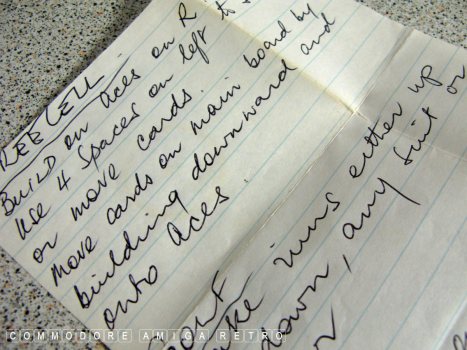 REE CELL
BUILD on Aces on R
Use 4 Spaces on left to
or move cards.
Move cards on main board by
building downward and
onto Aces.
runs either up
down, any suit or
COMMODORE AMIGA RETRO